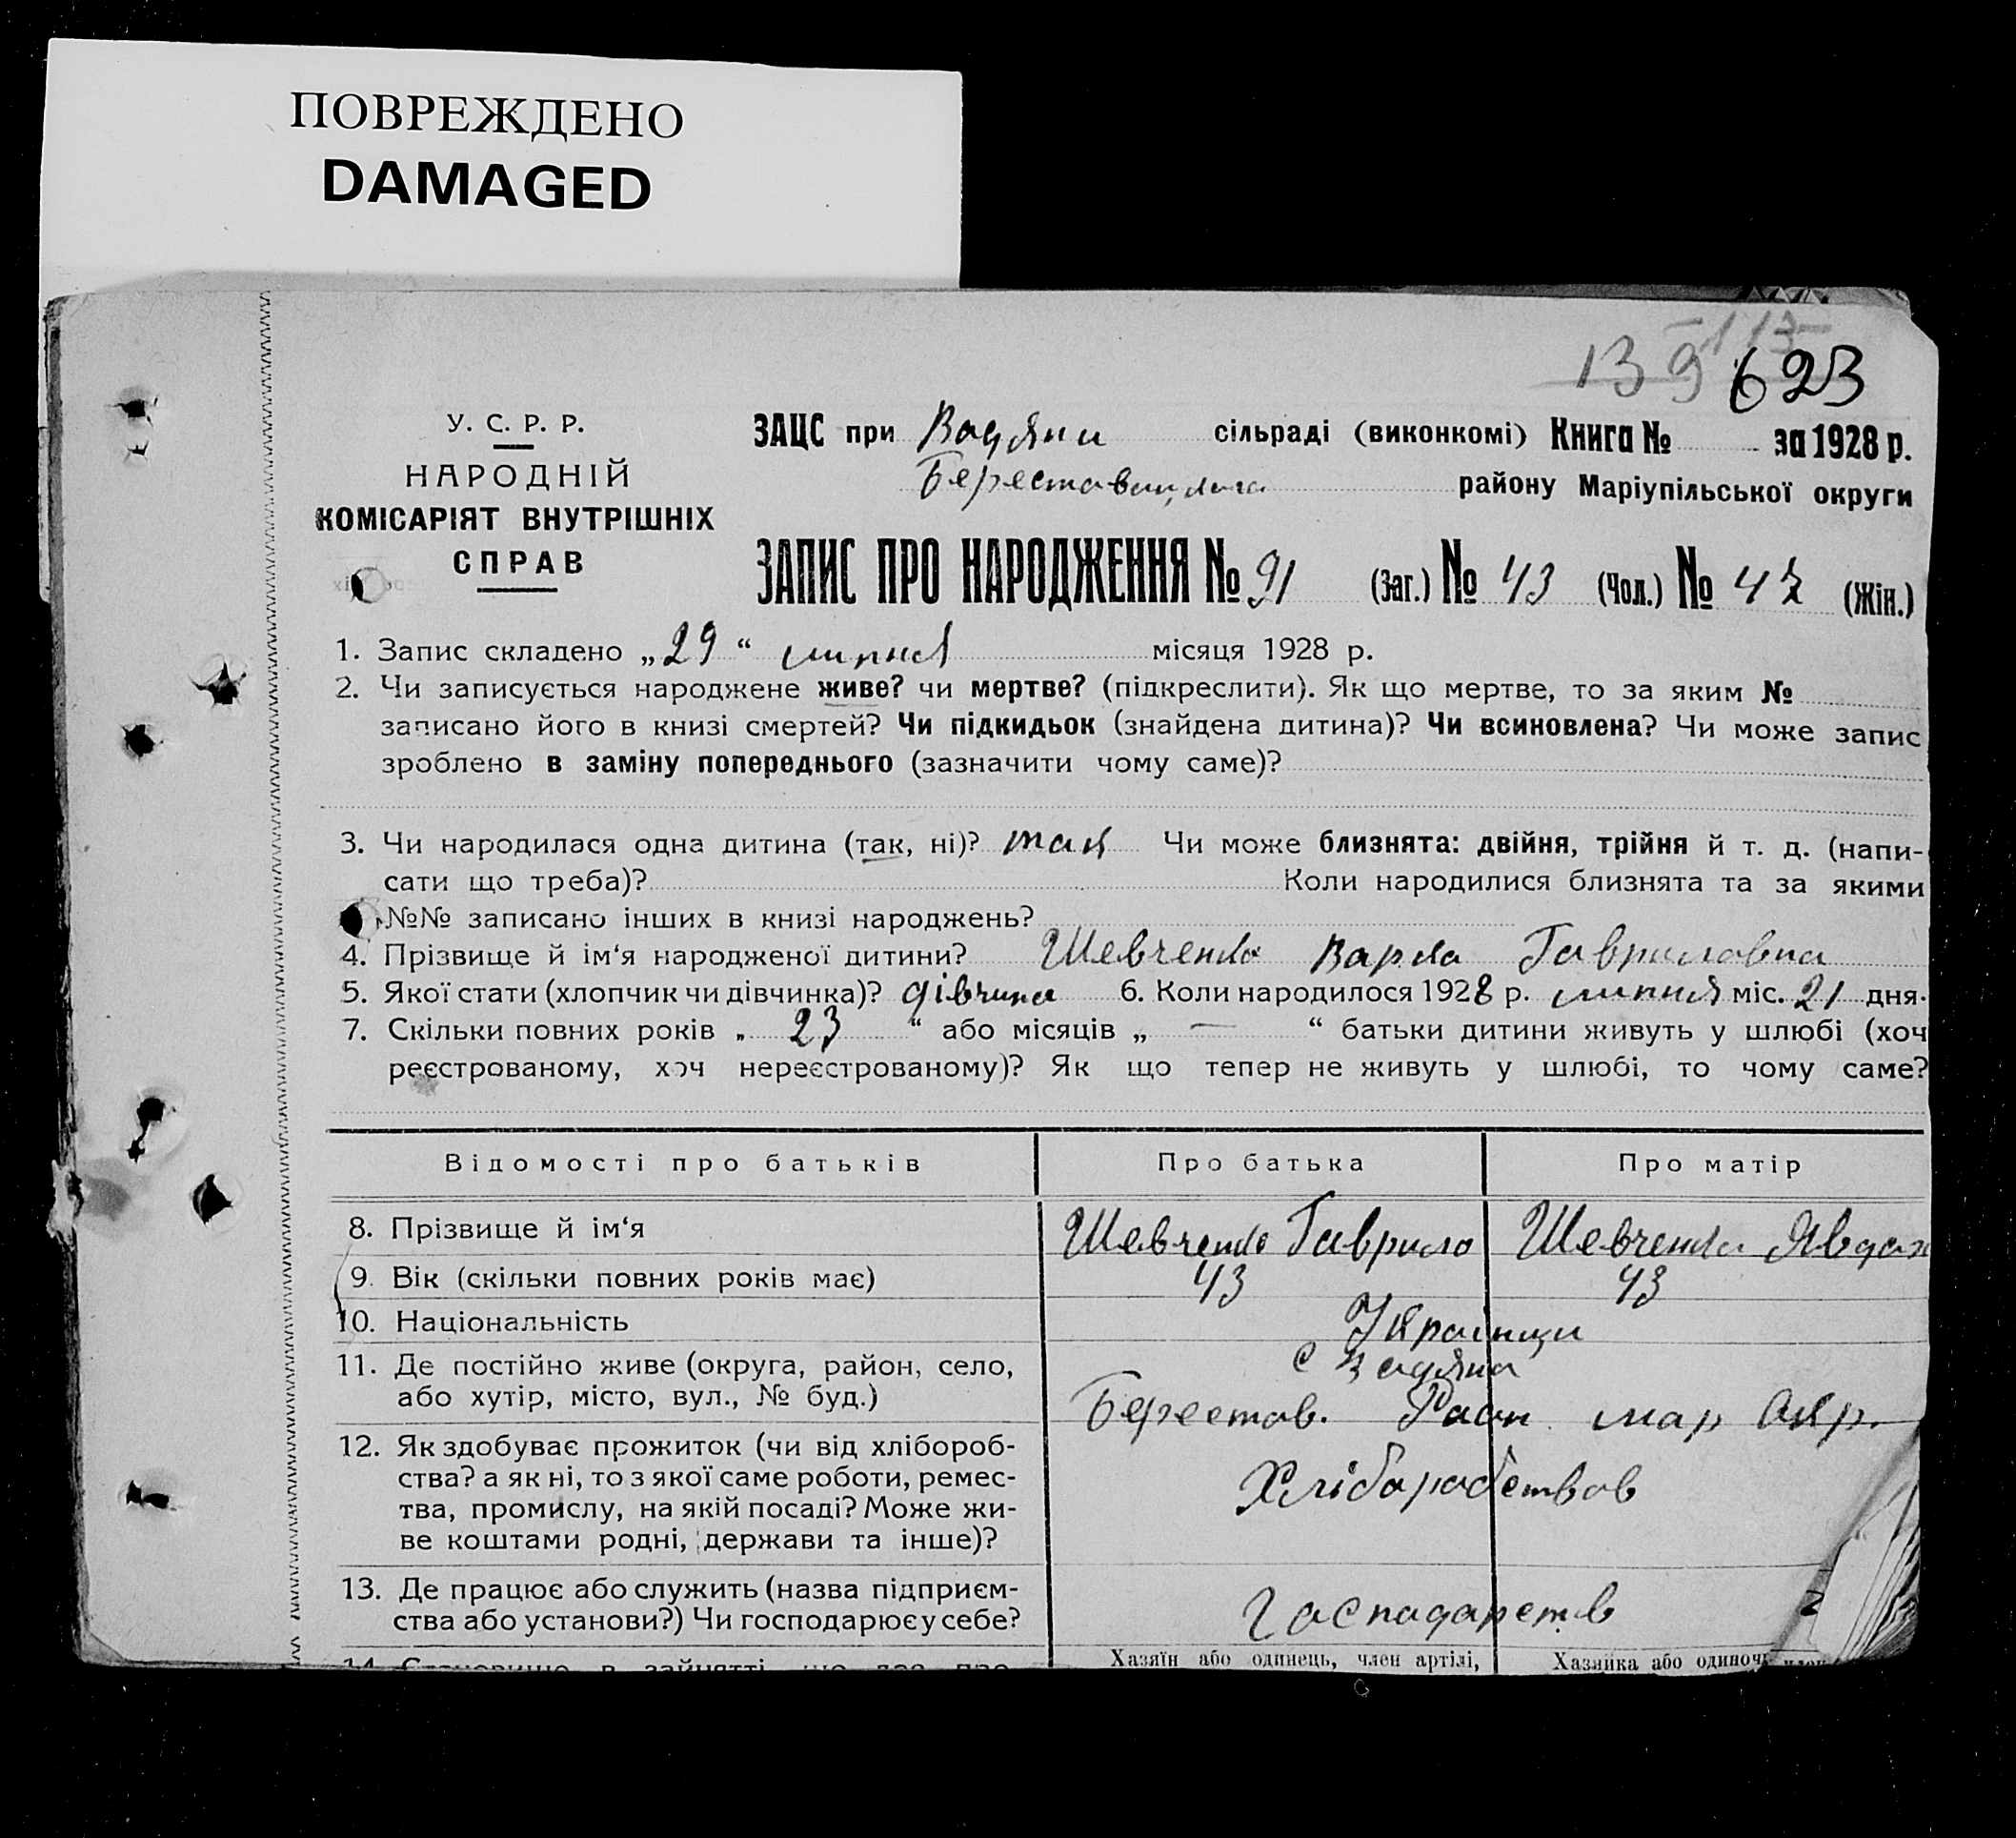 ПОВРЕЖДЕНО
DAMAGED
139 623
У. С. Р. Р.
НАРОДНІЙ
КОМІСАРІЯТ ВНУТРІШНІХ
СПРАВ
ЗАЦС при Водяни сільраді (виконкомі) Книга № за 1928 р.
району Маріупільської округи
ЗАПИС ПРО НАРОДЖЕННЯ № 91 (Заг.) № 43 (Чол.) № 48 (Жін.)
1. Запис складено „29“ липня місяця 1928 р.
2. Чи записується народжене живе? чи мертве? (підкреслити). Як що мертве, то за яким №
записано його в книзі смертей? Чи підкидьок (знайдена дитина)? Чи всиновлена? Чи може запис
зроблено в заміну попереднього (зазначити чому саме)?
3. Чи народилася одна дитина (так, ні)? так Чи може близнята: двійня, трійня й т. д. (напи-
сати що треба)? Коли народилися близнята та за якими
№№ записано інших в книзі народжень?
4. Прізвище й ім‘я народженої дитини? Шевченко Варка Гавриловна
5. Якої стати (хлопчик чи дівчинка)? дівчина 6. Коли народилося 1928 р. липня міс. 21 дня.
7. Скільки повних років „ 23 “ або місяців „ — “ батьки дитини живуть у шлюбі (хоч
реєстрованому, хоч нереєстрованому)? Як що тепер не живуть у шлюбі, то чому саме?
Відомості про батьків Про батька Про матір
8. Прізвище й ім‘я Шевченко Гаврило Шевченко Явдох
9. Вік (скільки повних років має) 43 43
10. Національність Українци
11. Де постійно живе (округа, район, село, с Водяна
або хутір, місто, вул., № буд.) Берестов. Район мар Окр.
12. Як здобуває прожиток (чи від хлібороб-
ства? а як ні, то з якої саме роботи, ремес- Хліборобством
тва, промислу, на якій посаді? Може жи-
ве коштами родні, держави та інше)?
13. Де працює або служить (назва підприєм-
ства або установи?) Чи господарює у себе? Господарств
14. Становище в занятті, що дає про-
Хазяїн або одинець, член артілі, Хазяйка або одиноч